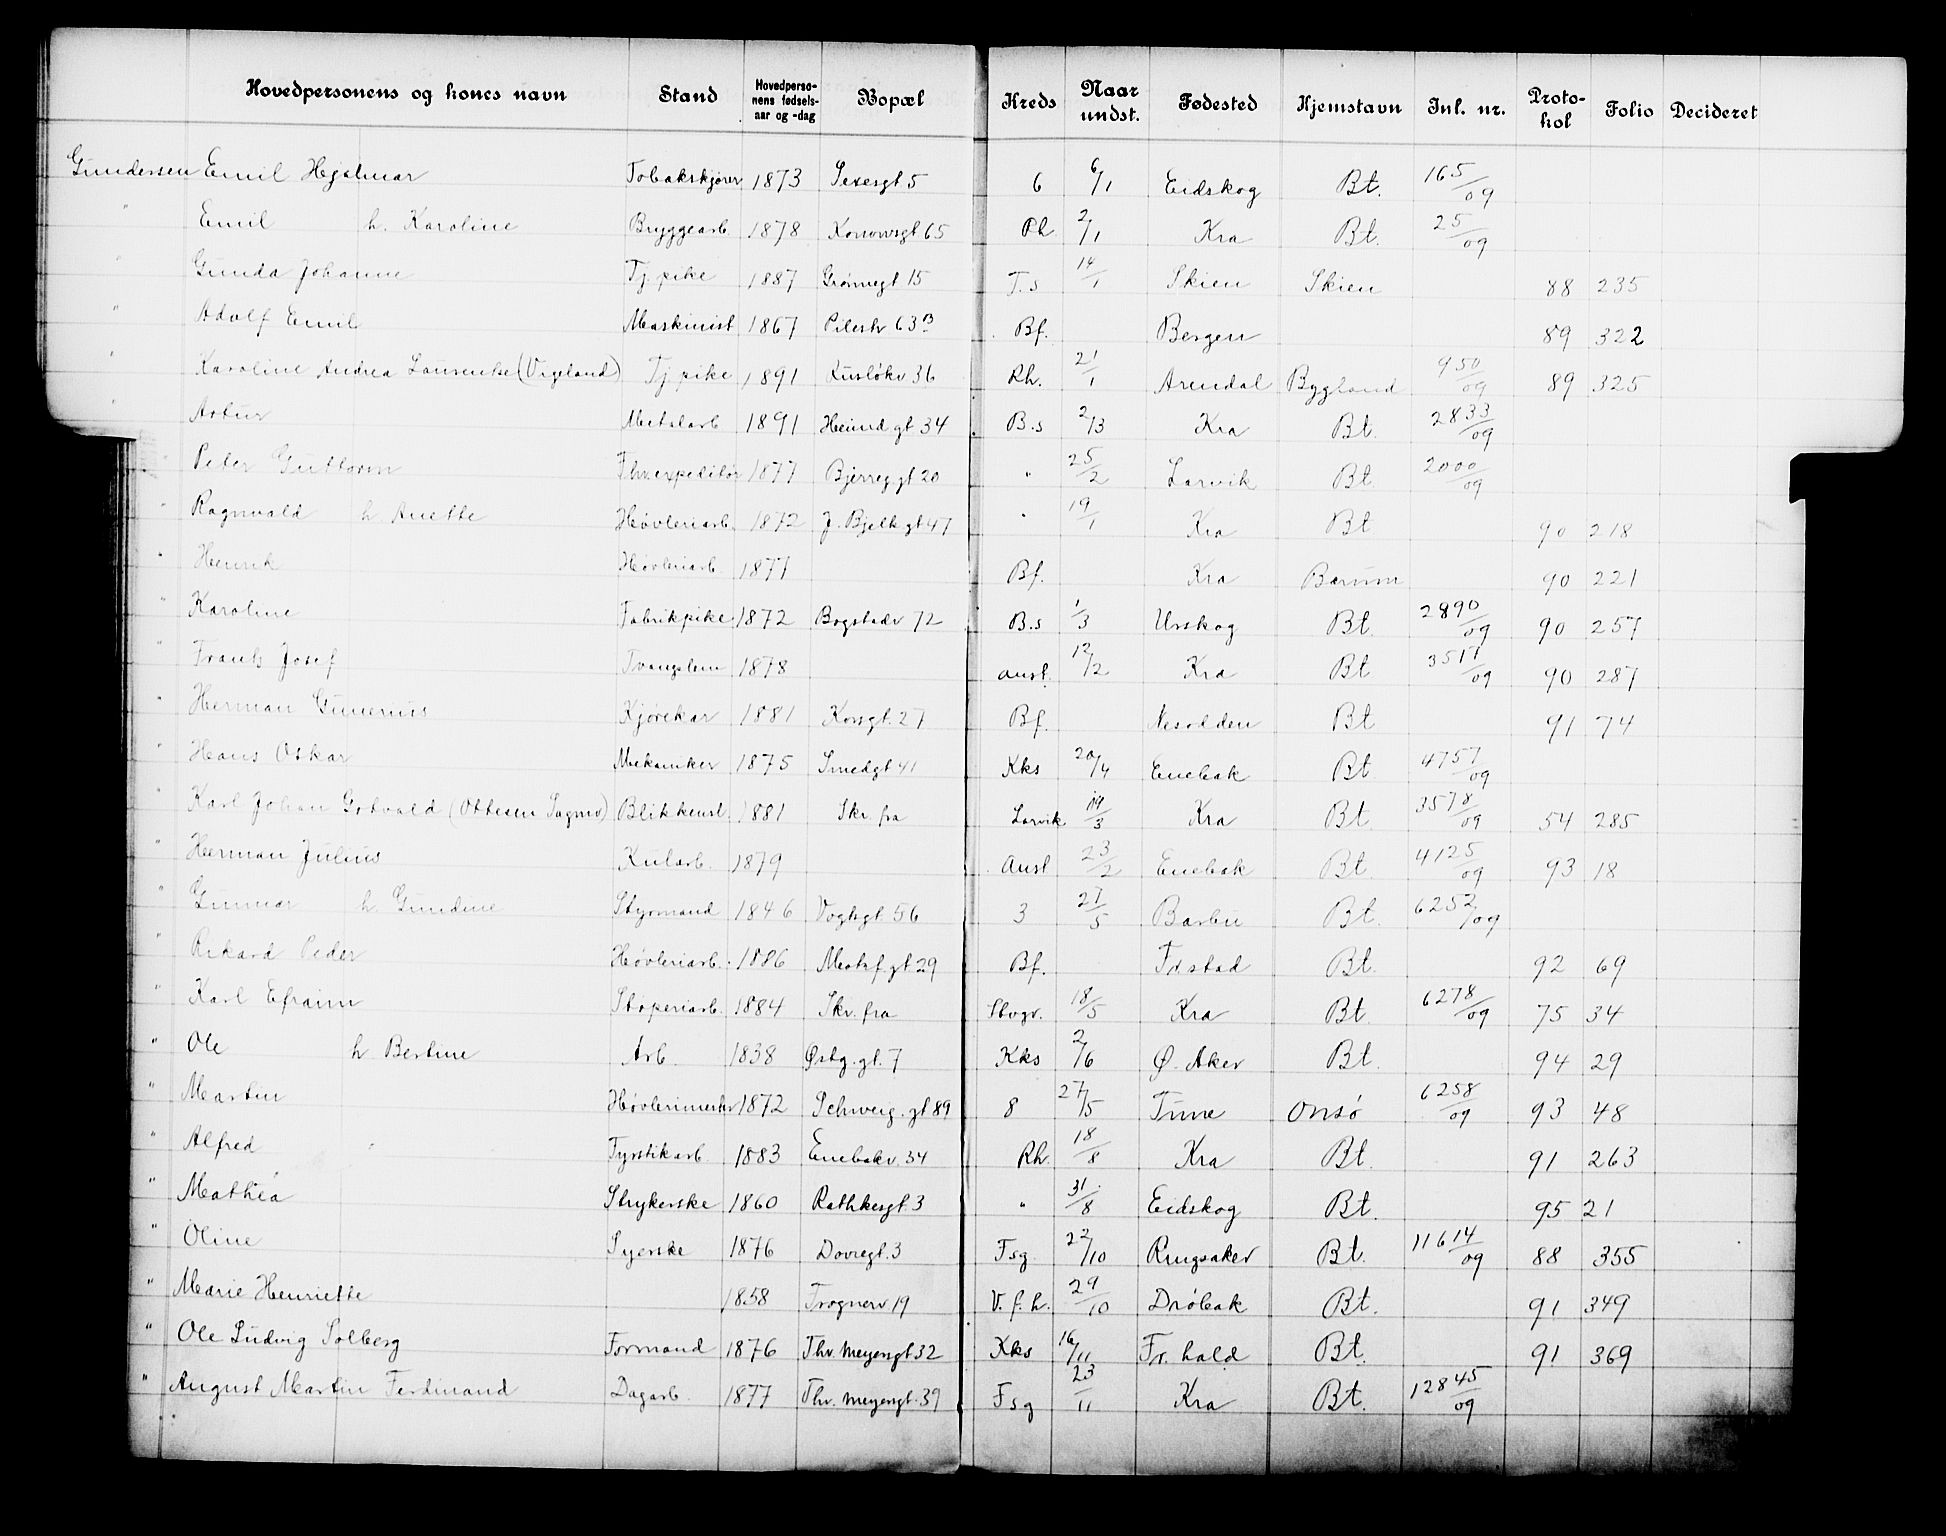 Hovedpersonens og kones navn Stand Hovedperso-nens fødsels-aar og -dag Bopæl Kreds Naar undst. Fødested Hjemstavn Inl. nr. Proto-kol Folio Decideret
Gundersen Emil Hjalmar Tobakskjører 1873 6 6/1 Eidskog Bt. 165/09
" Emil h. Karoline Bryggearb. 1878 Konowsgt 65 Rh. 2/1 Kra Bt. 25/09
" Gunda Johanne Tj. pike 1887 Grønnegt 15 T.s 14/1 Skien Skien 88 235
" Adolf Emil Maskinist 1867 Pilestr 63 B Bf. Bergen 89 322
" Karoline Andrea Laurentse (Vigeland) Tj pike 1891 36 Rh. 21/1 Arendal Bygland 950/09 89 325
" Artur Metalarb 1891 Heimd gt 34 B.s 2/3 Kra Bt. 2833/09
" Peter Guttorm 1877 Bjerreg gt 20 " 25/2 Larvik Bt. 2000/09
" Ragnvald h. Anette Høvleriarb. 1872 J. Bjelk gt 47 " 19/1 Kra Bt 90 218
" Henrik Høvleriarb. 1877 Bf. Kra Bærum 90 221
" Karoline Fabrikpike 1872 Bogstadv 72 B.s 1/3 Urskog Bt. 2890/09 90 257
" Frants Josef Tvangslem 1878 Anst. 12/2 Kra Bt 3517/09 90 287
" Herman Gunerius Kjørekar 1881 Korsgt. 27 Bf. Nesodden Bt 91 74
" Hans Oskar Mekaniker 1875 Smedgt 41 Kks 20/4 Enebak Bt 4757/09
" Karl Johan Gotvald (Ottesen Sagmo) Blikkensl. 1881 Skr. fra Larvik 19/3 Kra Bt. 3578/09 54 285
" Herman Julius Kularb. 1879 Anst 23/2 Enebak Bt. 4125/09 93 18
" Gunnar h Gundine Styrmand 1846 Vogtsgt 56 3 27/5 Barbu Bt. 6252/09
" Rikard Peder Høvleriarb. 1886 Motzf. gt. 29 Bf. Fr.stad Bt. 92 69
" Karl Efraim Støperiarb. 1884 Skr. fra Stvgr. 18/5 Kra Bt. 6278/09 75 34
" Ole h. Bertine Arb. 1838 Østg. gt. 7 Kks 2/6 Ø. Aker Bt. 94 29
" Martin Høvlerimester 1872 Schweig. gt 89 8 27/5 Tune Onsø 6258/09 93 48
" Alfred Fyrstikarb 1883 Enebakv. 34 Rh. 18/8 Kra Bt. 91 263
" Mathea Strykerske 1860 Rathkesgt. 3 " 31/8 Eidskog Bt. 95 21
" Oline Syerske 1876 Dovregt. 3 Fsg. 22/10 Ringsaker Bt. 11614/09 88 355
" Marie Henriette 1858 Frognerv. 19 V. f. h. 29/10 Drøbak Bt. 91 349
" Ole Ludvig Solberg Formand 1876 Thv. Meyersgt. 32 Kks 16/11 Fr. hald Bt. 91 369
" August Martin Ferdinand Dagarb. 1877 Thv. Meyersgt. 39 Fsg 23/11 Kra Bt. 12845/09